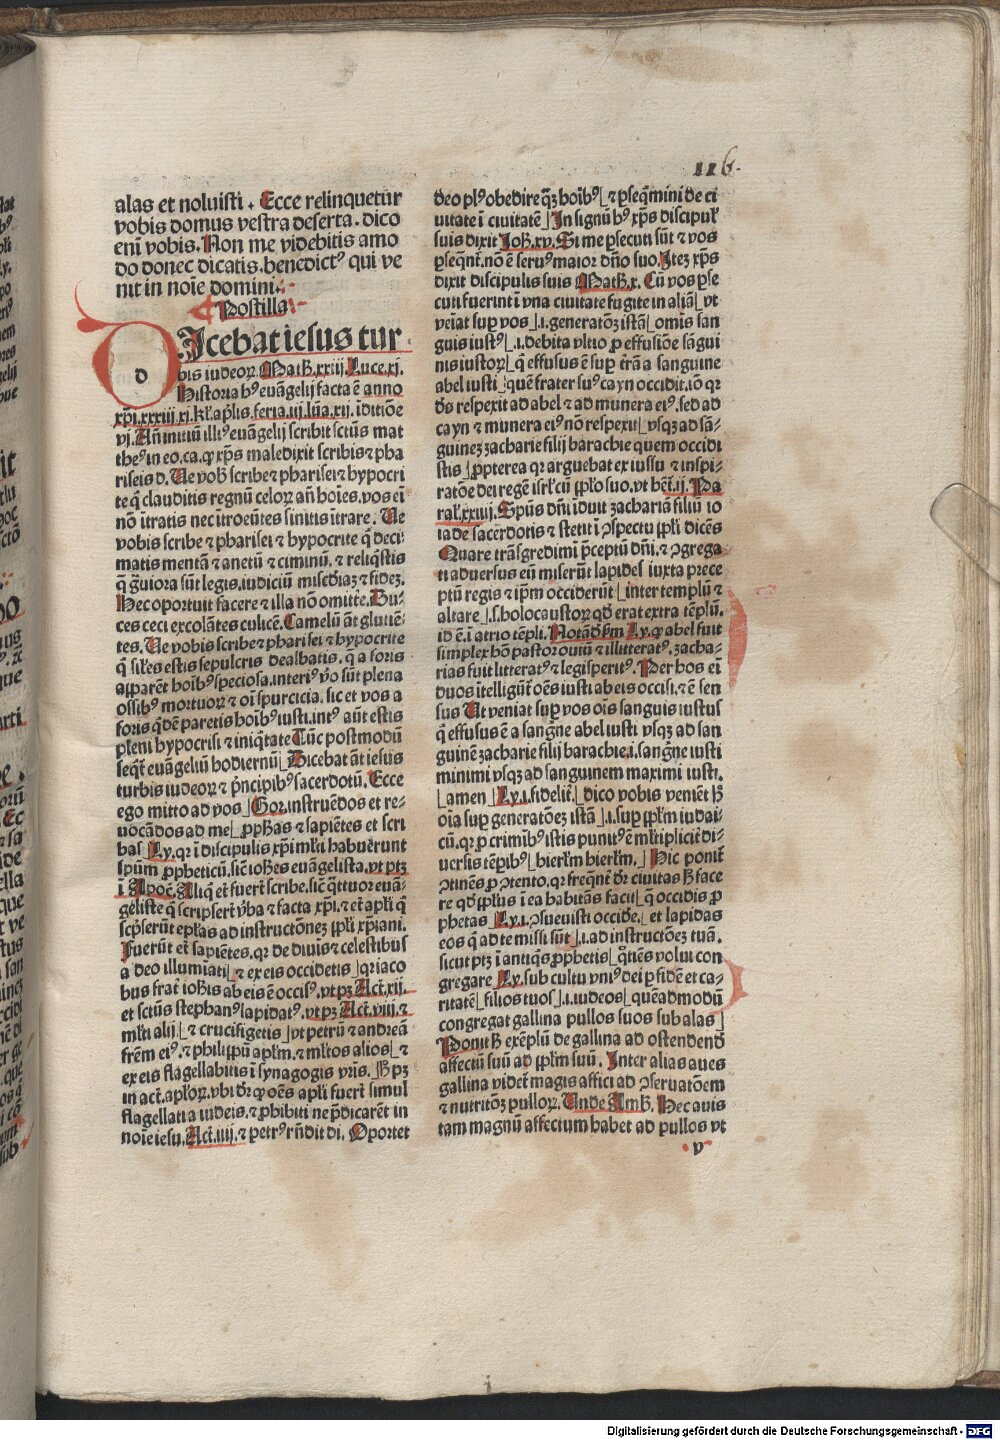 116.
alas et noluisti . Ecce relinquetur
vobis domus vestra deserta . dico
eni vobis. Non me videbitis amo
do donec dicatis.benedictꝰ qui ve
nit in noie domini.
Postilla
DIcebat iesus tur
d
bis iudeoꝝ. Math.xxiij. Luce.xj.
Historia hꝰ euāgelij facta ē anno
xp̄i.xxxiij.xj.kl̄.ap̄lis.feria.iij.lūa.xij.īditiōe
vj. Añ initiū illiꝰ euāgelij scribit sctūs mat
theꝰ in eo.ca.ꝙ xp̄s maledixit scribis ⁊ pha
riseis d. Ue vob̄ scribe ⁊ pharisei ⁊ hypocri
te q̄ clauditis regnū celoꝝ añ hoīes.vos eī
nō ītratis nec ītroeūtes sinitis ītrare. Ue
vobis scribe ⁊ pharisei ⁊ hypocrite q̄ deci
matis mentā ⁊ anetū ⁊ ciminū. ⁊ reliq̄stis
q̄ g̃uiora sūt legis.iudiciū misc̄diaꝫ ⁊ fideꝫ.
Hec oportuit facere ⁊ illa nō omitte. Du
ces ceci excolātes culicē. Camelū āt glutiē
tes. Ue vobis scribe ⁊ pharisei ⁊ hypocrite
q̄ sil̄es estis sepulcris dealbatis. q̄ a foris
apparēt hoībꝰ speciosa.interiꝰ v̄o sūt plena
ossibꝰ mortuoꝝ ⁊ oī spurcicia. sic et vos a
foris q̄dē paretis hoībꝰ iusti.intꝰ aūt estis
pleni hypocrisi ⁊ iniq̄tate Tūc postmodū
seqt̄ euāgeliū hodiernū Dicebat āt iesus
turbis iudeoꝝ ⁊ p̄ncipibꝰ sacerdotū. Ecce
ego mitto ad vos Gor. instruēdos et re-
uocādos ad me ꝓphas ⁊ sapiētes et scri
bas Ly. qꝛ ī discipulis xp̄i ml̄ti habuērunt
sp̄um ꝓpheticū. sic̄ iohes euāgelista. vt ptꝫ
ī Apoc̄. Aliq̄ et̄ fuerūt scribe. sic̄ q̄ttuor euā-
geliste q̄ scripserūt v̄ba ⁊ facta xp̄i. ⁊ et̄ apl̄i q̄
sc̄pserūt epl̄as ad instructōneꝫ ip̄li xp̄iani.
Fuerūt et̄ sapiētes. qꝛ de diuīs ⁊ celestibus
a deo illumiati ⁊ ex eis occidetis qꝛ iaco
bus frat̄ iohis ab eis ē occisꝰ. vt pꝫ Act̄.xij.
et sctūs stephanꝰ lapidatꝰ. vt pꝫ Act̄.viij. ⁊
ml̄ti alij. ⁊ crucifigetis vt petrū ⁊ andreā
frēm eiꝰ. ⁊ philippū apl̄m. ⁊ ml̄tos alios ⁊
ex eis flagellabitis ī synagogis vr̄is. Hꝫ pꝫ
in act̄.aploꝝ. vbi dr̄ ꝙ oēs apl̄i fuer̄t simul
flagellati a iudeis. ⁊ ꝓhibiti ne p̄dicarēt in
noīe iesu. Act̄.iiij. ⁊ petrꝰ rn̄dit di. Oportet
deo plꝰ obedire qꝫ hoībꝰ ⁊ ꝑseq̄mini de ci
uitate ī ciuitatē In signū hꝰ xp̄s discipul̄
suis dixit Joh.xv. Si me ꝑsecuti sūt ⁊ vos
ꝑseqnt̄. nō ē seruꝰ maior dn̄o suo. Iteꝫ xp̄s
dixit discipulis suis Math.x. Cū vos ꝑse
cuti fuerint ī vna ciuitate fugite in aliā vt
veīat suꝑ vos .i. generatōꝫ istā omīs san
guis iustꝰ .i. debita vltio ꝓ effusiōe sāgui
nis iustoꝝ q̄ effusus ē suꝑ t̄rā a sanguine
abel iusti quē frater suꝰ cayn occidit. iō qꝛ
dn̄s respexit ad abel ⁊ ad munera eiꝰ. sed ad
cayn ⁊ munera eiꝰ nō respexit vsqꝫ ad sā-
guineꝫ zacharie filij barachie quem occidi
stis ꝓpterea qꝛ arguebat ex iussu ⁊ inspi-
ratōe dei regē isrl̄ cū ip̄lo suo. vt bēt̄.ij. Pa
ral̄.xxiiij. Sp̄us dn̄i īduit zachariā filiū io
iade sacerdotis ⁊ stetit ī ꝯspectu ip̄li dicēs
Quare trāsgredimī p̄ceptū dn̄i. ⁊ ꝯgrega
ti aduersus eū miserūt lapides iuxta prece
ptū regis ⁊ ip̄m occiderūt inter templū ⁊
altare .s. holocaustoꝝ qd̓ erat extra tēplū.
id ē. ī atrio tēpli. Notād̓ s̓m Ly. ꝙ abel fuit
simplex hō pastor ouiū ⁊ illitteratꝰ. zacha-
rias fuit litteratꝰ ⁊ legisperitꝰ. Per hos eī
duos ītelligūt oēs iusti ab eis occisi. ⁊ ē sen
sus Ut veniat suꝑ vos oīs sanguis iustus
q̄ effusus ē a sang̃ne abel iusti vsqꝫ ad san
guinē zacharie filij barachie .i. sang̃ne iusti
minimi vsqꝫ ad sanguinem maximi iusti.
amen Ly. i. fidelit̄. dico vobis veniēt h̄
oīa suꝑ generatōeꝫ istā .i. suꝑ ip̄lm iudai-
cū. qꝛ ꝓ crimībꝰ istis punitꝰ ē ml̄tiplicit̄ di-
uersis tēꝑibꝰ hierl̄m hierl̄m. Hic ponit̄
ꝯtinēs ꝓ ꝯtento. qꝛ freq̄nt̄ dr̄ ciuitas h̄ face
re qd̓ ip̄lus ī ea habitās facit q̄ occidis ꝓ
phetas Ly. i. ꝯsueuisti occide. et lapidas
eos q̄ ad te missi sūt .i. ad instructōeꝫ tuā.
sicut ptꝫ ī antiq̄s ꝓphetis q̄ties volui con
gregare Ly. sub cultu vniꝰ dei ꝑ fidē et ca-
ritatē filios tuos .i. iudeos quēadmodū
congregat gallina pullos suos sub alas
Ponit̄ h̄ exēplū de gallina ad ostendend̓
affectū suū ad ip̄lm suū. Inter alias aues
gallina videt̄ magis affici ad ꝯseruatōem
⁊ nutritōꝫ pulloꝝ. Unde Amb̄. Hec auis
tam magnū affectum habet ad pullos vt
v
Digitalisierung gefördert durch die Deutsche Forschungsgemeinschaft - DFG